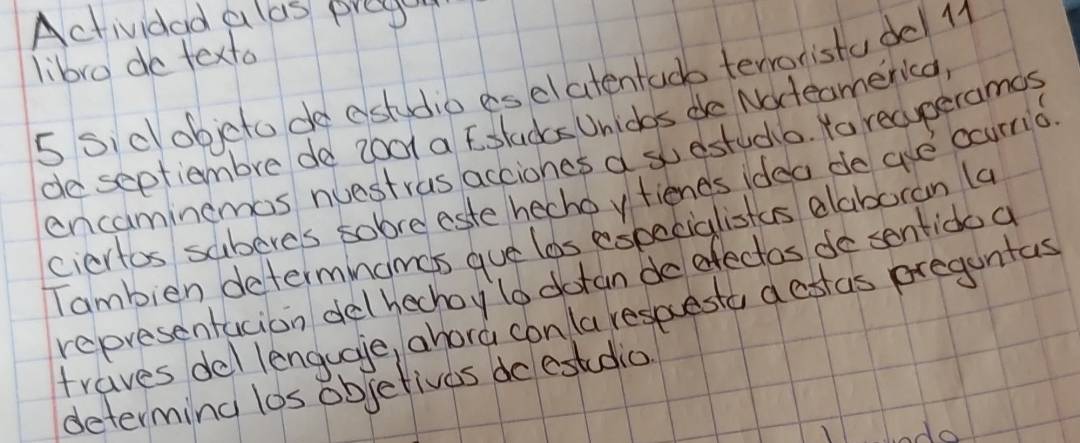 Actividad a las
libro de texto
5 Si el objeto de estudio es el atentado terrorista del 11
de septiembre de 2001 a Estados Unidos de Norteamérica,
encaminemos nuestras acciones a su estudio. Ya recuperamos
ciertos saberes sobre este hecho y tienes idea de qué ocurrió.
Tambien determinamos que los especialistas elaboran la
representación del hecho y lo dotan de efectos de sentido a
traves del lenguaje, ahora con la respuesta a estas preguntas
determina los objetivos de estudio.